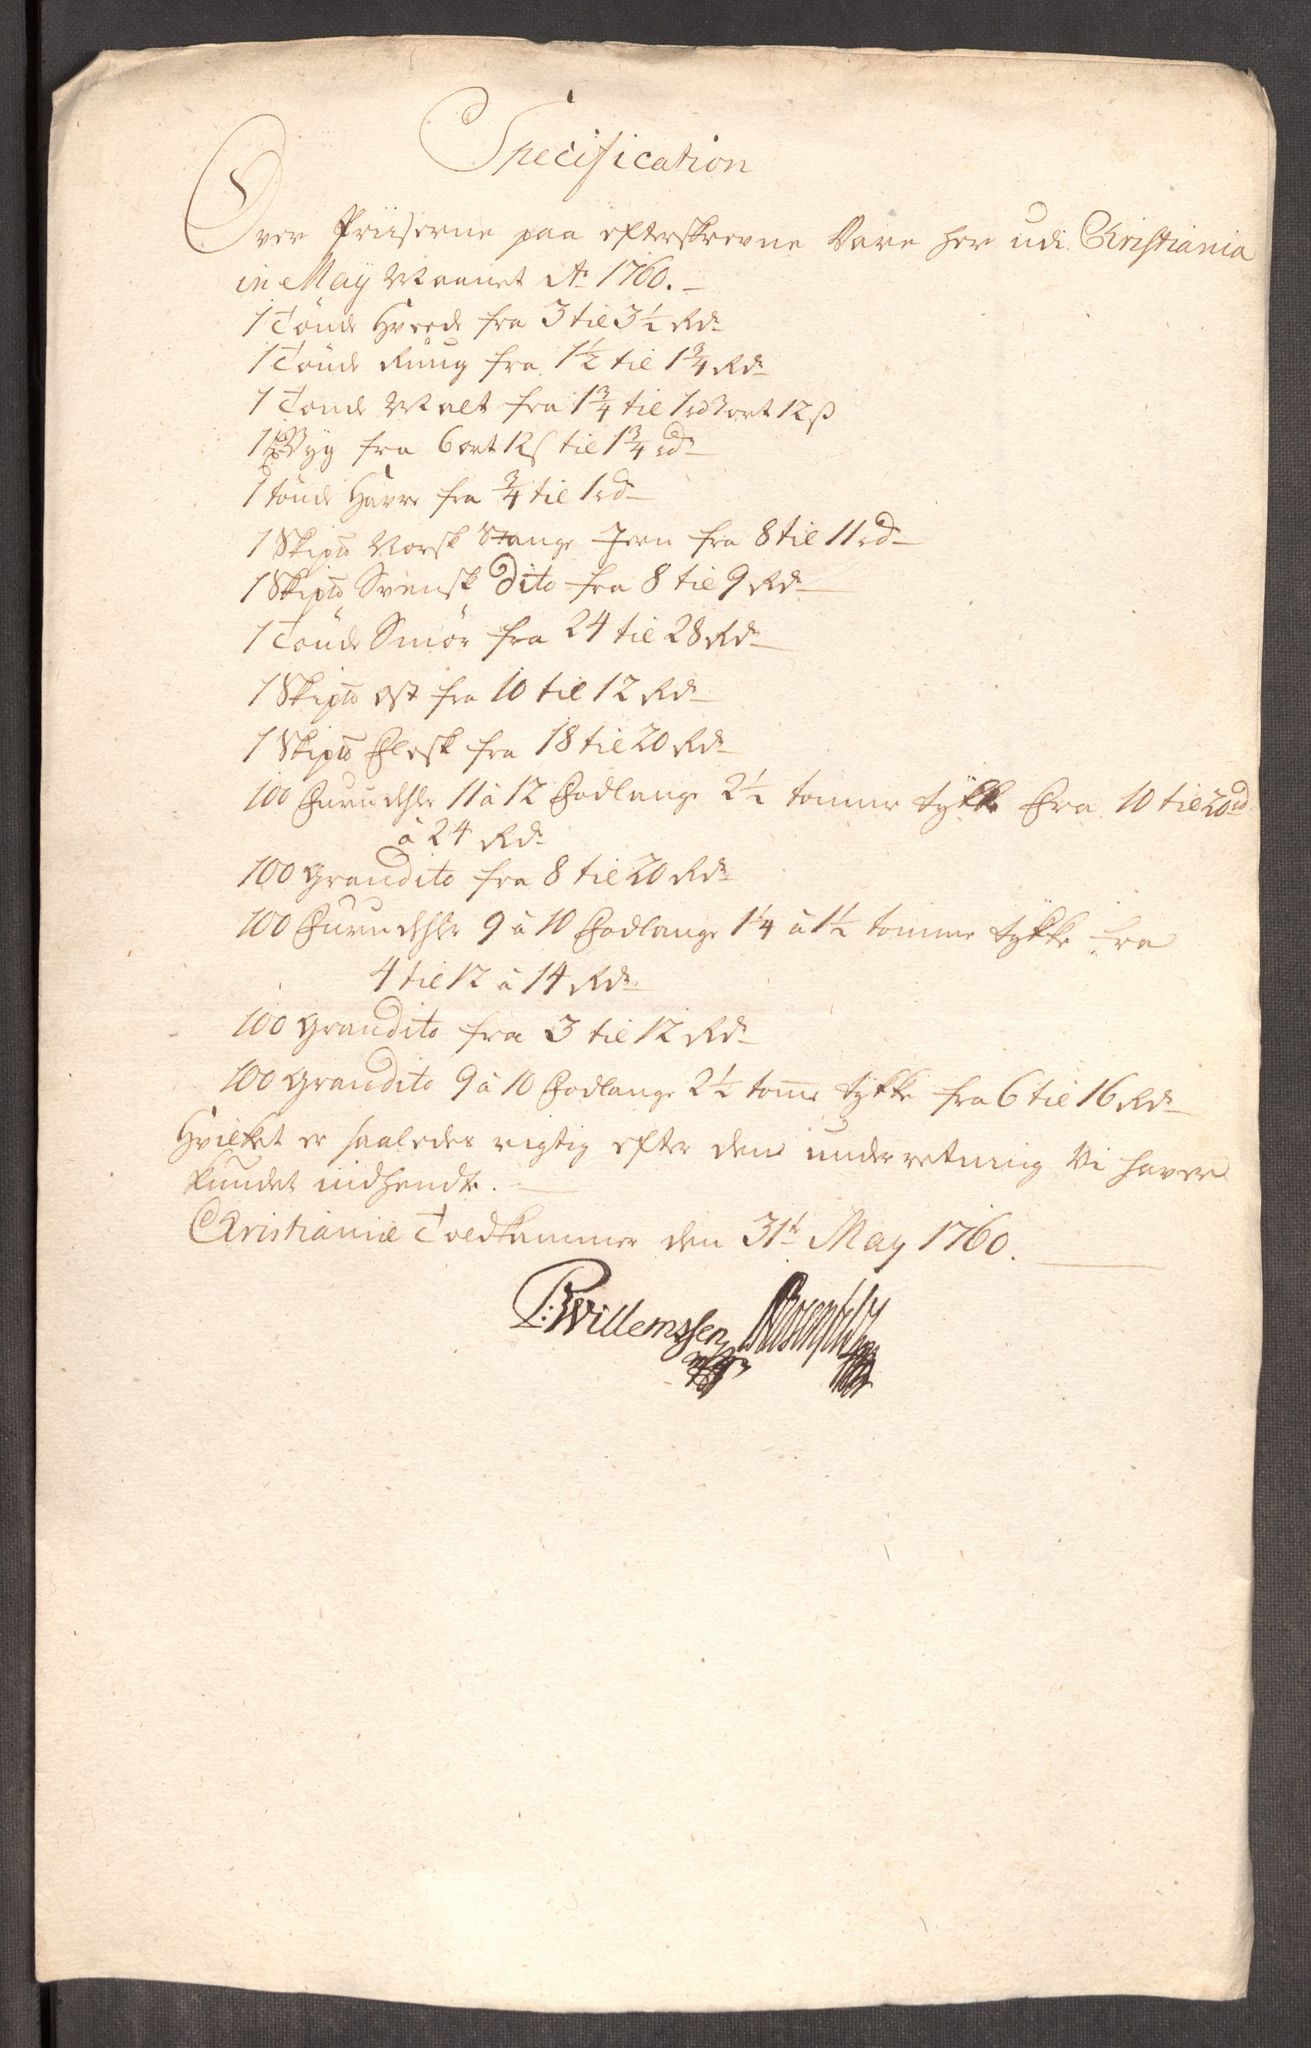 Specification
Over Priiserne paa efterskrevne Vare her udi Christiania
in May Maanet Ao 1760.
1 Tønde Hvede fra 3 til 3½ Rdr
1 Tønde Ruug fra 1½ til 1¾ Rdr
1 Tønde Malt fra 1¾ til 1 rd 3 ort 12 ß
1 Byg fra 6 ort 12 ß til 1¾ rdr
1 tønde Havre fra ¾ til 1 rdr
1 Skippd Norsk Stange Jern fra 8 til 11 rdr
1 Skippd Svensk dito fra 8 til 9 Rdr
1 Tønde Smør fra 24 til 28 Rdr
1 Skippd Ost fra 10 til 12 Rdr
1 Skippd Flesk fra 18 til 20 Rdr
100 Furudehler 11 à 12 Fodlange 2½ tomme tykke fra 10 til 20 rd
à 24 Rdr
100 Grandito fra 8 til 20 Rdr
100 Furudehler 9 à 10 Fodlange 1¼ à 1½ tomme tykke fra
4 til 12 à 14 Rdr
100 Grandito fra 3 til 12 Rdr
100 Grandito 9 à 10 Fodlange 2½ tome tykke fra 6 til 16 Rdr
Hvilket er saaledes rigtig efter den underretning Vi haver
kundet indhendte.
Christianiæ Toldkammer den 31te May 1760.
P: Willemssen